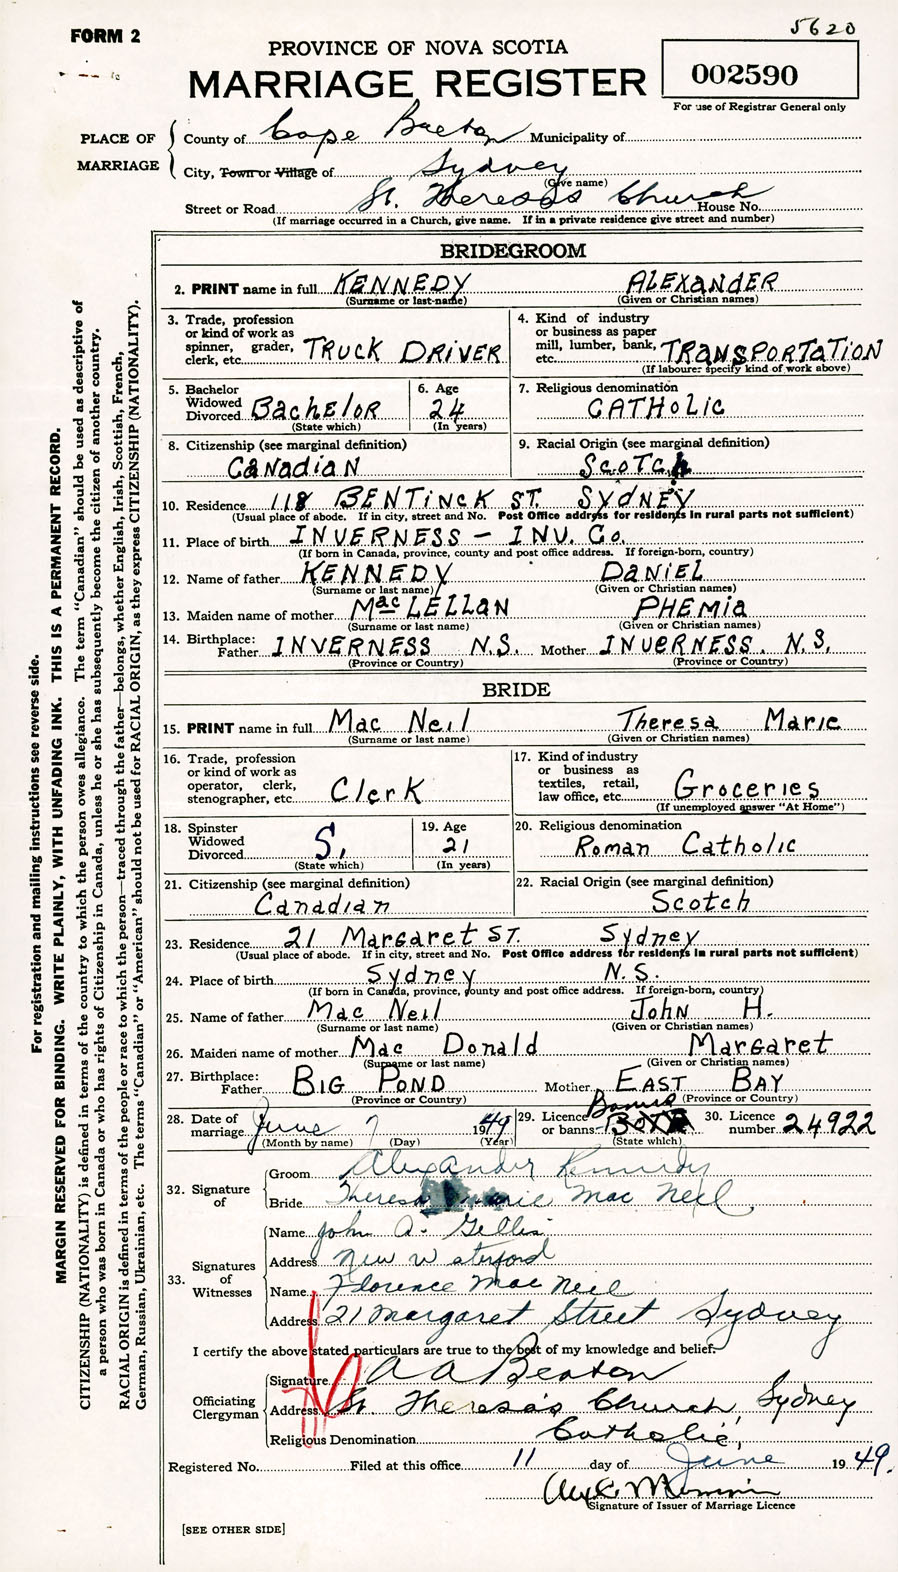 FORM 2
5620
PROVINCE OF NOVA SCOTIA
MARRIAGE REGISTER
002590
For use of Registrar General only
PLACE OF MARRIAGE
County of Cape Breton Municipality of
City, Town or Village of Sydney
(Give name)
Street or Road St. Theresa's Church House No.
(If marriage occurred in a Church, give name. If in a private residence give street and number)
BRIDEGROOM
2. PRINT name in full KENNEDY ALEXANDER
(Surname or last name) (Given or Christian names)
3. Trade, profession or kind of work as spinner, grader, clerk, etc. TRUCK DRIVER
4. Kind of industry or business as paper mill, lumber, bank, etc. TRANSPORTATION
(If labourer specify kind of work above)
5. Bachelor Widowed Divorced BACHELOR
(State which)
6. Age 24
(In years)
7. Religious denomination CATHOLIC
8. Citizenship (see marginal definition) CANADIAN
9. Racial Origin (see marginal definition) SCOTCH
10. Residence 118 BENTINCK ST. SYDNEY
(Usual place of abode. If in city, street and No. Post Office address for residents in rural parts not sufficient)
11. Place of birth INVERNESS – INV. Co.
(If born in Canada, province, county and post office address. If foreign-born, country)
12. Name of father KENNEDY DANIEL
(Surname or last name) (Given or Christian names)
13. Maiden name of mother MacLELLAN PHEMIA
(Surname or last name) (Given or Christian names)
14. Birthplace: Father INVERNESS N.S. Mother INVERNESS. N.S.
(Province or Country) (Province or Country)
BRIDE
15. PRINT name in full Mac Neil Theresa Marie
(Surname or last name) (Given or Christian names)
16. Trade, profession or kind of work as operator, clerk, stenographer, etc. Clerk
17. Kind of industry or business as textiles, retail, law office, etc. Groceries
(If unemployed answer "At Home")
18. Spinster Widowed Divorced S.
(State which)
19. Age 21
(In years)
20. Religious denomination Roman Catholic
21. Citizenship (see marginal definition) Canadian
22. Racial Origin (see marginal definition) Scotch
23. Residence 21 Margaret ST. Sydney
(Usual place of abode. If in city, street and No. Post Office address for residents in rural parts not sufficient)
24. Place of birth Sydney N.S.
(If born in Canada, province, county and post office address. If foreign-born, country)
25. Name of father Mac Neil John H.
(Surname or last name) (Given or Christian names)
26. Maiden name of mother Mac Donald Margaret
(Surname or last name) (Given or Christian names)
27. Birthplace: Father BIG POND Mother EAST BAY
(Province or Country) (Province or Country)
28. Date of marriage June 7 1949
(Month by name) (Day) (Year)
29. Licence or banns Banns
(State which)
30. Licence number 24922
32. Signature of
Groom Alexander Kennedy
Bride Theresa Marie Mac Neil
33. Signatures of Witnesses
Name John A. Gillis
Address New Waterford
Name Florence Mac Neil
Address 21 Margaret Street Sydney
I certify the above stated particulars are true to the best of my knowledge and belief.
Officiating Clergyman
Signature A A Beaton
Address St. Theresa's Church, Sydney
Religious Denomination Catholic,
Registered No. Filed at this office 11 day of June 1949.
Signature of Issuer of Marriage Licence
[SEE OTHER SIDE]
For registration and mailing instructions see reverse side.
MARGIN RESERVED FOR BINDING. WRITE PLAINLY, WITH UNFADING INK. THIS IS A PERMANENT RECORD.
CITIZENSHIP (NATIONALITY) is defined in terms of the country to which the person owes allegiance. The term "Canadian" should be used as descriptive of
a person who was born in Canada or who has rights of Citizenship in Canada, unless he or she has subsequently become the citizen of another country.
RACIAL ORIGIN is defined in terms of the people or race to which the person—traced through the father—belongs, whether English, Irish, Scottish, French,
German, Russian, Ukrainian, etc. The terms "Canadian" or "American" should not be used for RACIAL ORIGIN, as they express CITIZENSHIP (NATIONALITY).